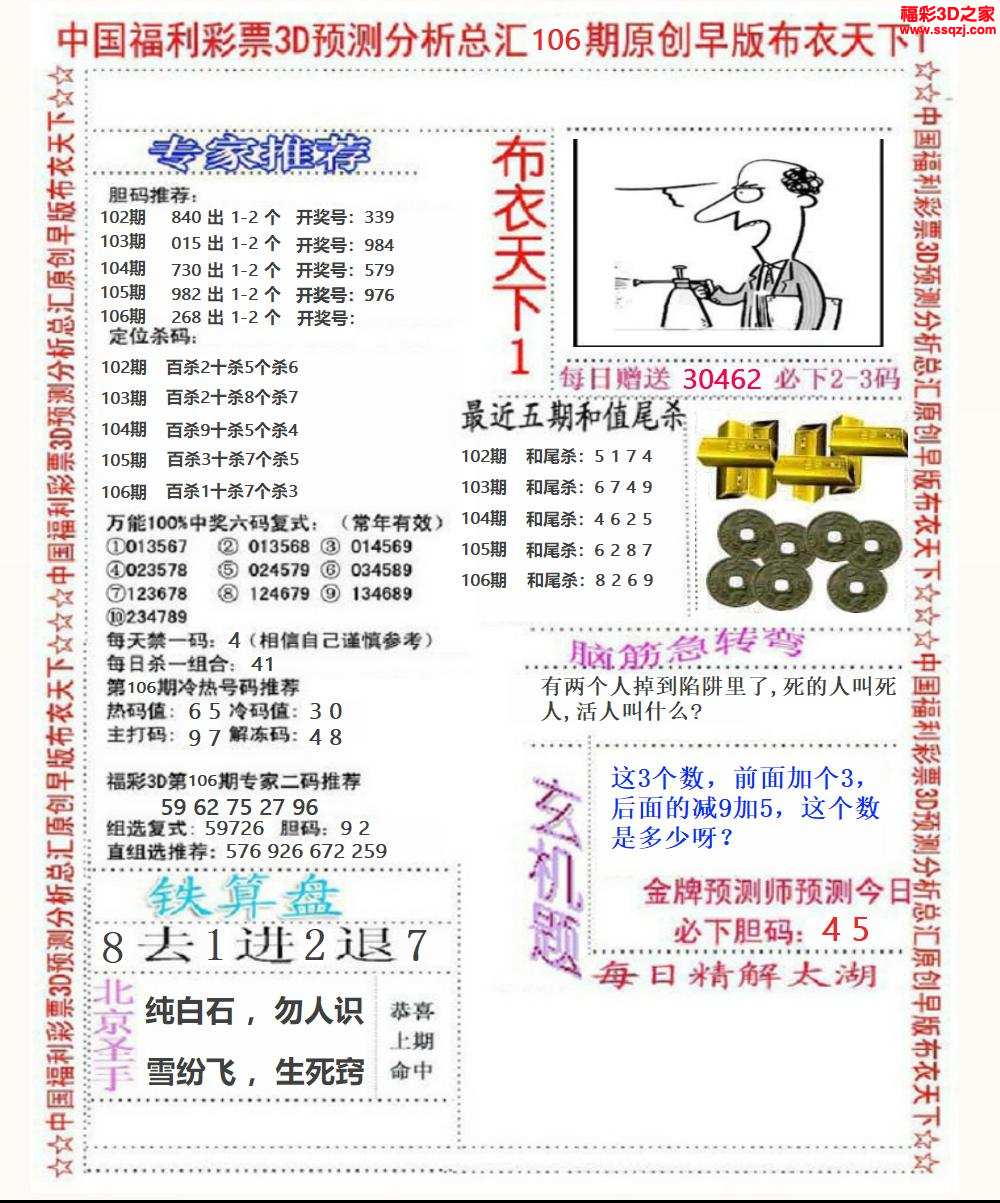 福彩3D之家
www.ssqzj.com
中国福利彩票3D预测分析总汇106期原创早版布衣天下1
☆☆中国福利彩票3D预测分析总汇原创早版布衣天下☆☆中国福利彩票3D预测分析总汇原创早版布衣天下☆☆
专家推荐
胆码推荐:
102期 840 出 1-2 个 开奖号: 339
103期 015 出 1-2 个 开奖号: 984
104期 730 出 1-2 个 开奖号: 579
105期 982 出 1-2 个 开奖号: 976
106期 268 出 1-2 个 开奖号:
定位杀码:
102期 百杀2十杀5个杀6
103期 百杀2十杀8个杀7
104期 百杀9十杀5个杀4
105期 百杀3十杀7个杀5
106期 百杀1十杀7个杀3
万能100%中奖六码复式: (常年有效)
①013567 ② 013568 ③ 014569
④023578 ⑤ 024579 ⑥ 034589
⑦123678 ⑧ 124679 ⑨ 134689
⑩234789
每天禁一码: 4 (相信自己谨慎参考)
每日杀一组合: 41
第106期冷热号码推荐
热码值: 6 5 冷码值: 3 0
主打码: 9 7 解冻码: 4 8
福彩3D第106期专家二码推荐
59 62 75 27 96
组选复式: 59726 胆码: 9 2
直组选推荐: 576 926 672 259
铁算盘
8去1进2退7
北京圣手
纯白石，勿人识
雪纷飞，生死窍
恭喜
上期
命中
布衣天下1
每日赠送 30462 必下2-3码
最近五期和值尾杀
102期 和尾杀: 5 1 7 4
103期 和尾杀: 6 7 4 9
104期 和尾杀: 4 6 2 5
105期 和尾杀: 6 2 8 7
106期 和尾杀: 8 2 6 9
脑筋急转弯
有两个人掉到陷阱里了,死的人叫死
人,活人叫什么?
玄机题
这3个数，前面加个3，
后面的减9加5，这个数
是多少呀？
金牌预测师预测今日
必下胆码: 4 5
每日精解太湖
☆☆中国福利彩票3D预测分析总汇原创早版布衣天下☆☆中国福利彩票3D预测分析总汇原创早版布衣天下☆☆